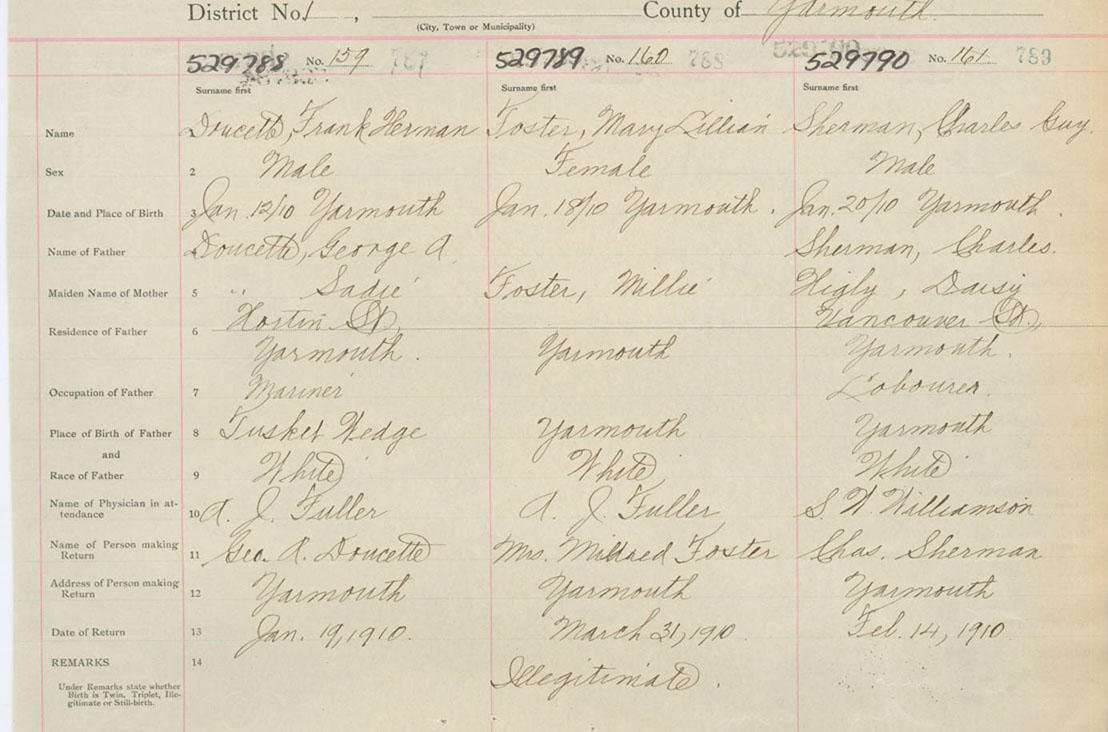 District No. 1 , County of Yarmouth
(City, Town or Municipality)
529788 No. 159 787 529789 No. 160 788 529790 No. 161 789
Surname first Surname first Surname first
Name Doucett, Frank Herman Foster, Mary Lillian Sherman, Charles Guy.
Sex 2 Male Female Male
Date and Place of Birth 3 Jan. 12/10 Yarmouth Jan. 18/10 Yarmouth . Jan. 20/10 Yarmouth .
Name of Father Doucett, George A. Sherman, Charles.
Maiden Name of Mother 5 " Sadie Foster, Millie Higly , Daisy
Hortin St, Vancouver St,
Residence of Father 6 Yarmouth . Yarmouth Yarmouth .
Occupation of Father 7 Mariner Labourer
Place of Birth of Father 8 Tusket Wedge Yarmouth Yarmouth
and
Race of Father 9 White White White
Name of Physician in at-
tendance 10 A. J. Fuller A. J. Fuller S. W. Williamson
Name of Person making
Return 11 Geo. A. Doucette Mrs. Mildred Foster Chas. Sherman
Address of Person making
Return 12 Yarmouth Yarmouth Yarmouth
Date of Return 13 Jan. 19, 1910. March 31, 1910. Feb. 14, 1910.
REMARKS 14 Illegitimate .
Under Remarks state whether
Birth is Twin, Triplet, Ille-
gitimate or Still-birth.